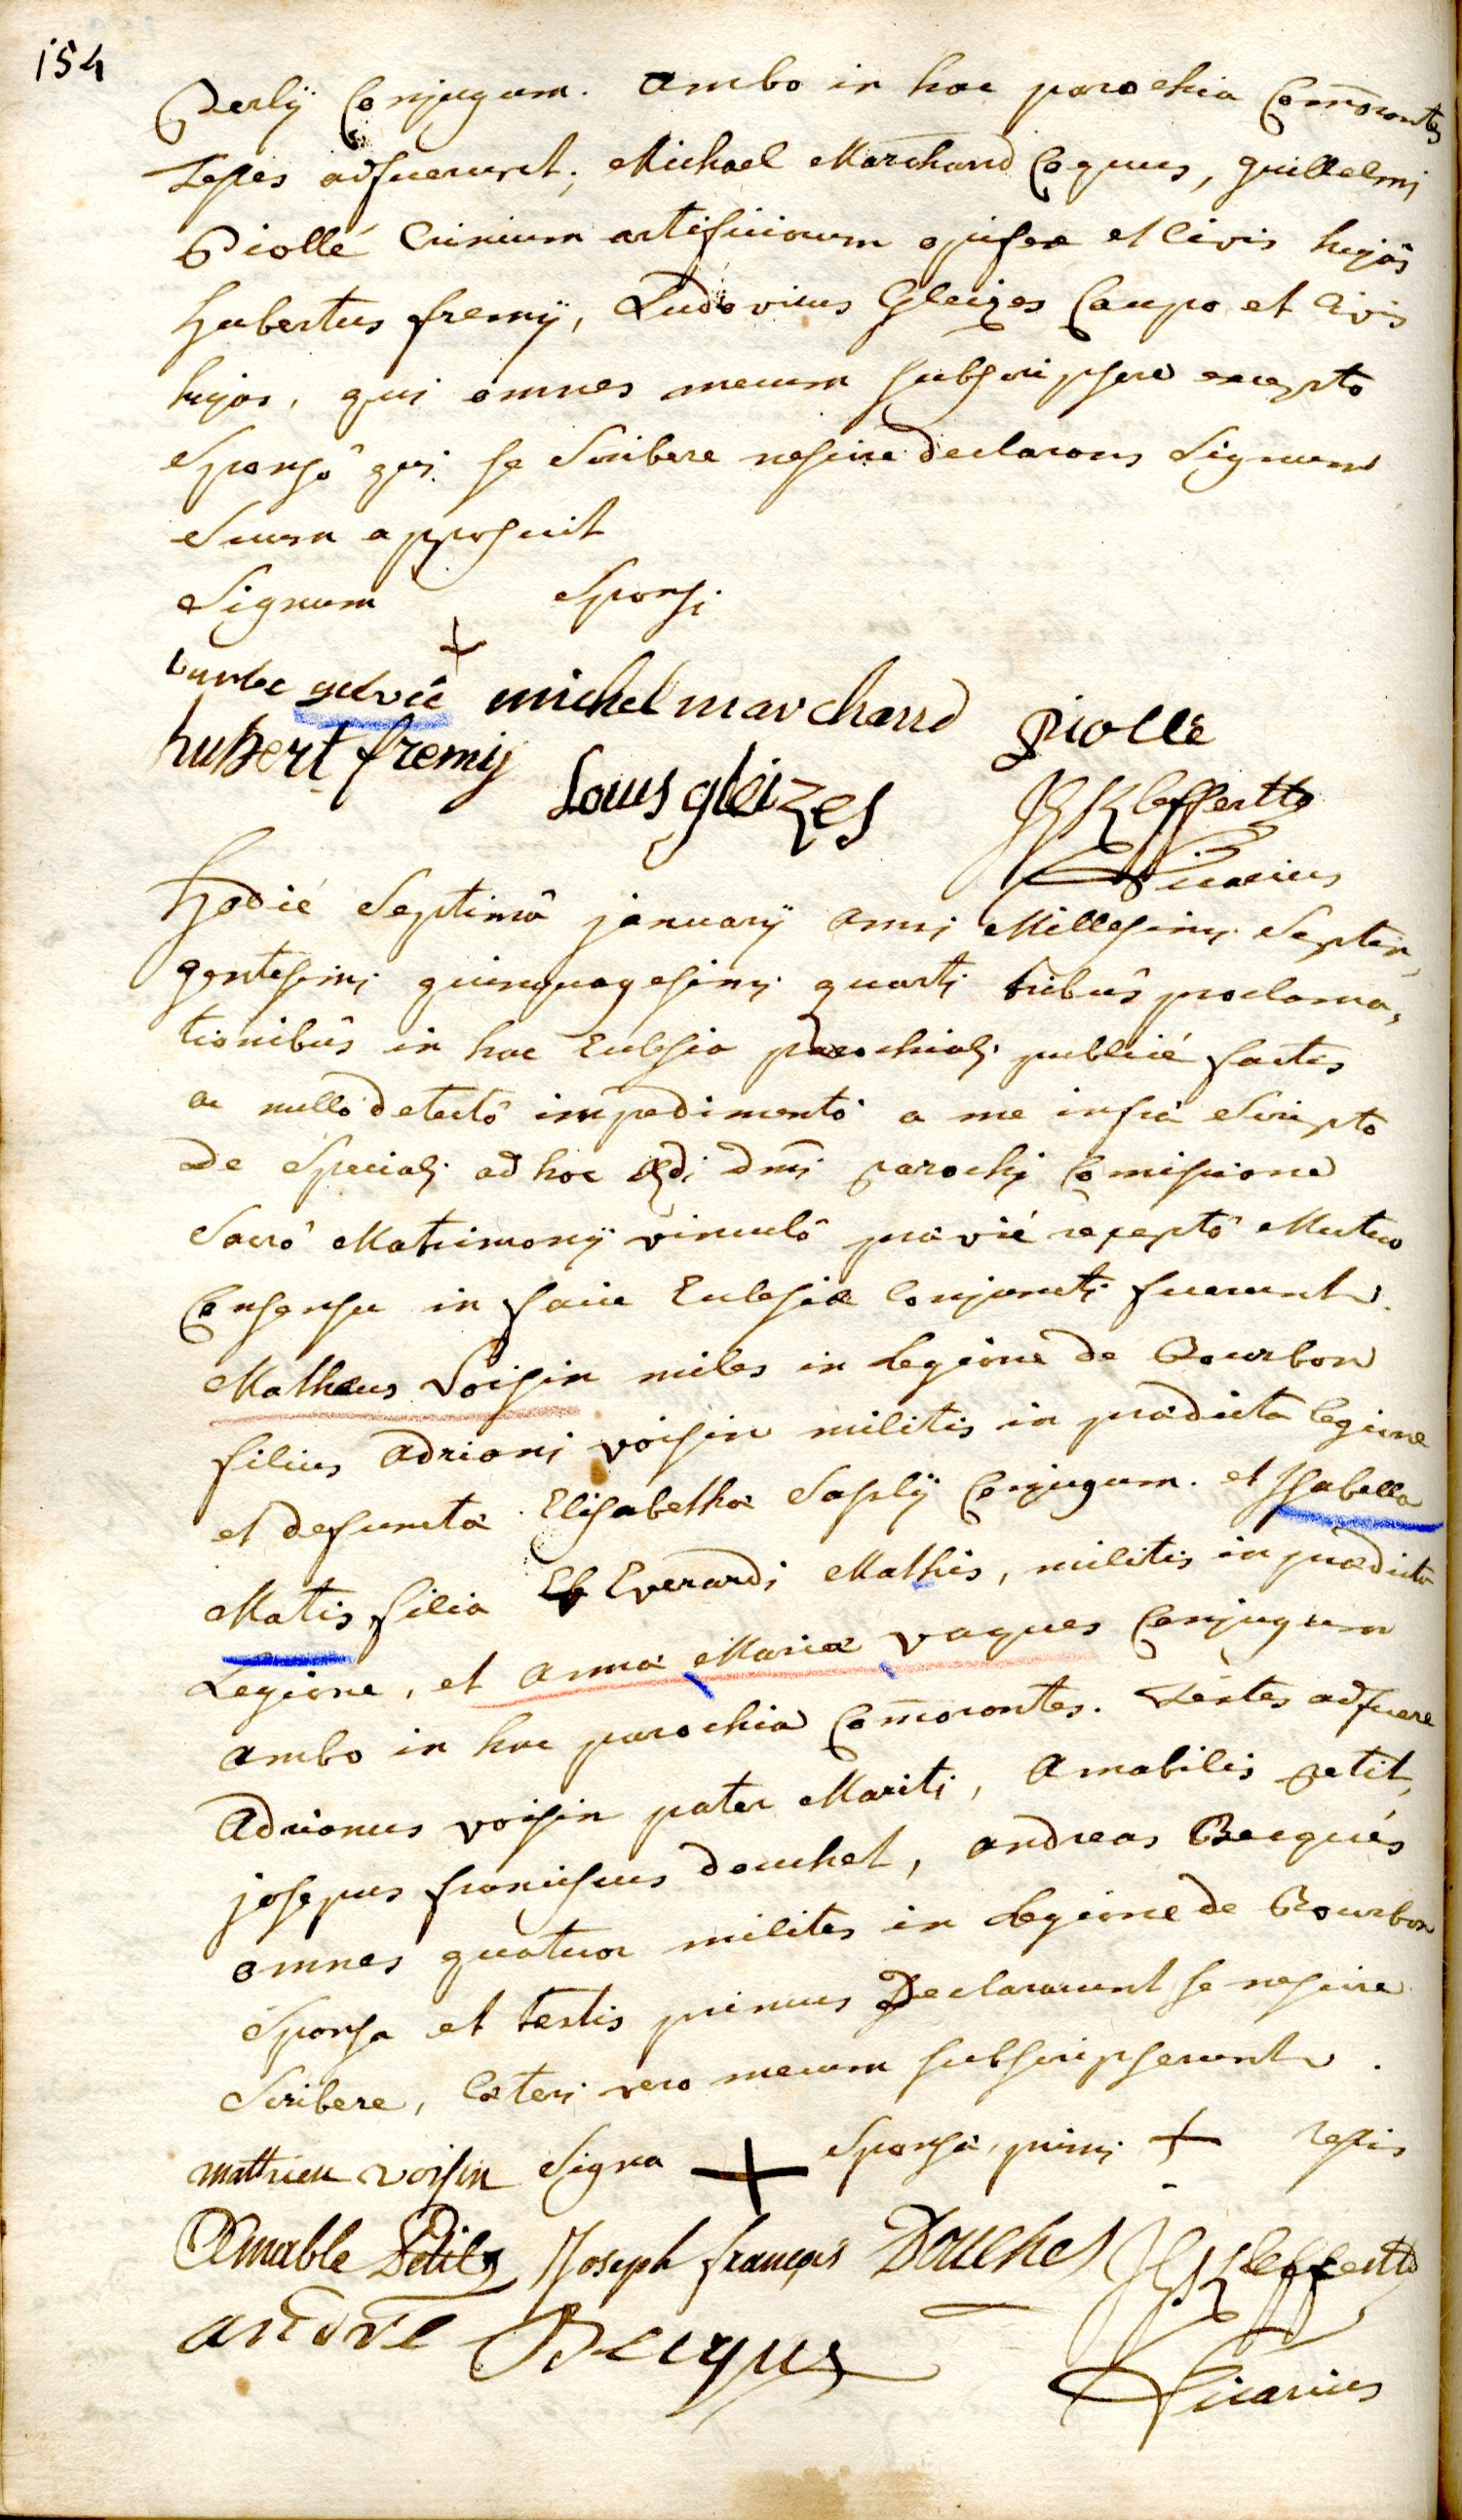 154
Perlÿ Conjugum. Ambo in hac parochia Com̄orantes
Testes adfuerunt, Michael Marchand Coquus, guillelmi
Piollé Crinium artificiorum opifex et Civis hujás
hubertus fremÿ, Ludovicus Gleizes Caupo et Civis
hujas, qui omnes mecum subscripsere excepto
Sponsô qui se Scribere nescire declarans Signum
Suum apposuit
Signum + Sponsi
barbe michel marchand piollé
hubert fremij Louis gleizes JG Kleffertts
Vicarius
Hodié Septimâ januarÿ anni Millesimi Septin,
gentesimi quinquagesimi quarti tribûs proclama,
tionibûs in hac Eclesia parochiali publicé factis
ac nullô detectô impedimentô a me infra Scripto
De Speciali ad hoc dm̄i parochi Comissione
Sacrô Matrimonÿ vinculô prævié receptô Mutuo
Consensu in facie Eclesiæ Conjuncti fuerunt
Mathæus Voisin miles in Legione de Bourbon
filius adriani voisin militis in prædicta legione
et defunctæ Elisabethæ Saplÿ Conjugum. et Isabella
Matis filia Everardi Mathis, militis in prædicta
Legione, et annæ Mariæ vaques Conjugum
ambo in hac parochia Com̄orantes. Testes adfuere
Adrianus voisin pater Mariti, Amabilis petit,
josepus franciscus douchet, andreas Becqués
omnes quatuor milites in Legione de Bourbon
Sponsa et testis primus Declararunt se nescire
Scribere, Cæteri vero mecum subscripserunt.
mathieu voisin Signa + Sponsæ, primi + testis
Amable Petit Joseph françois Douchet JG Kleffertts
andré Becque Vicarius